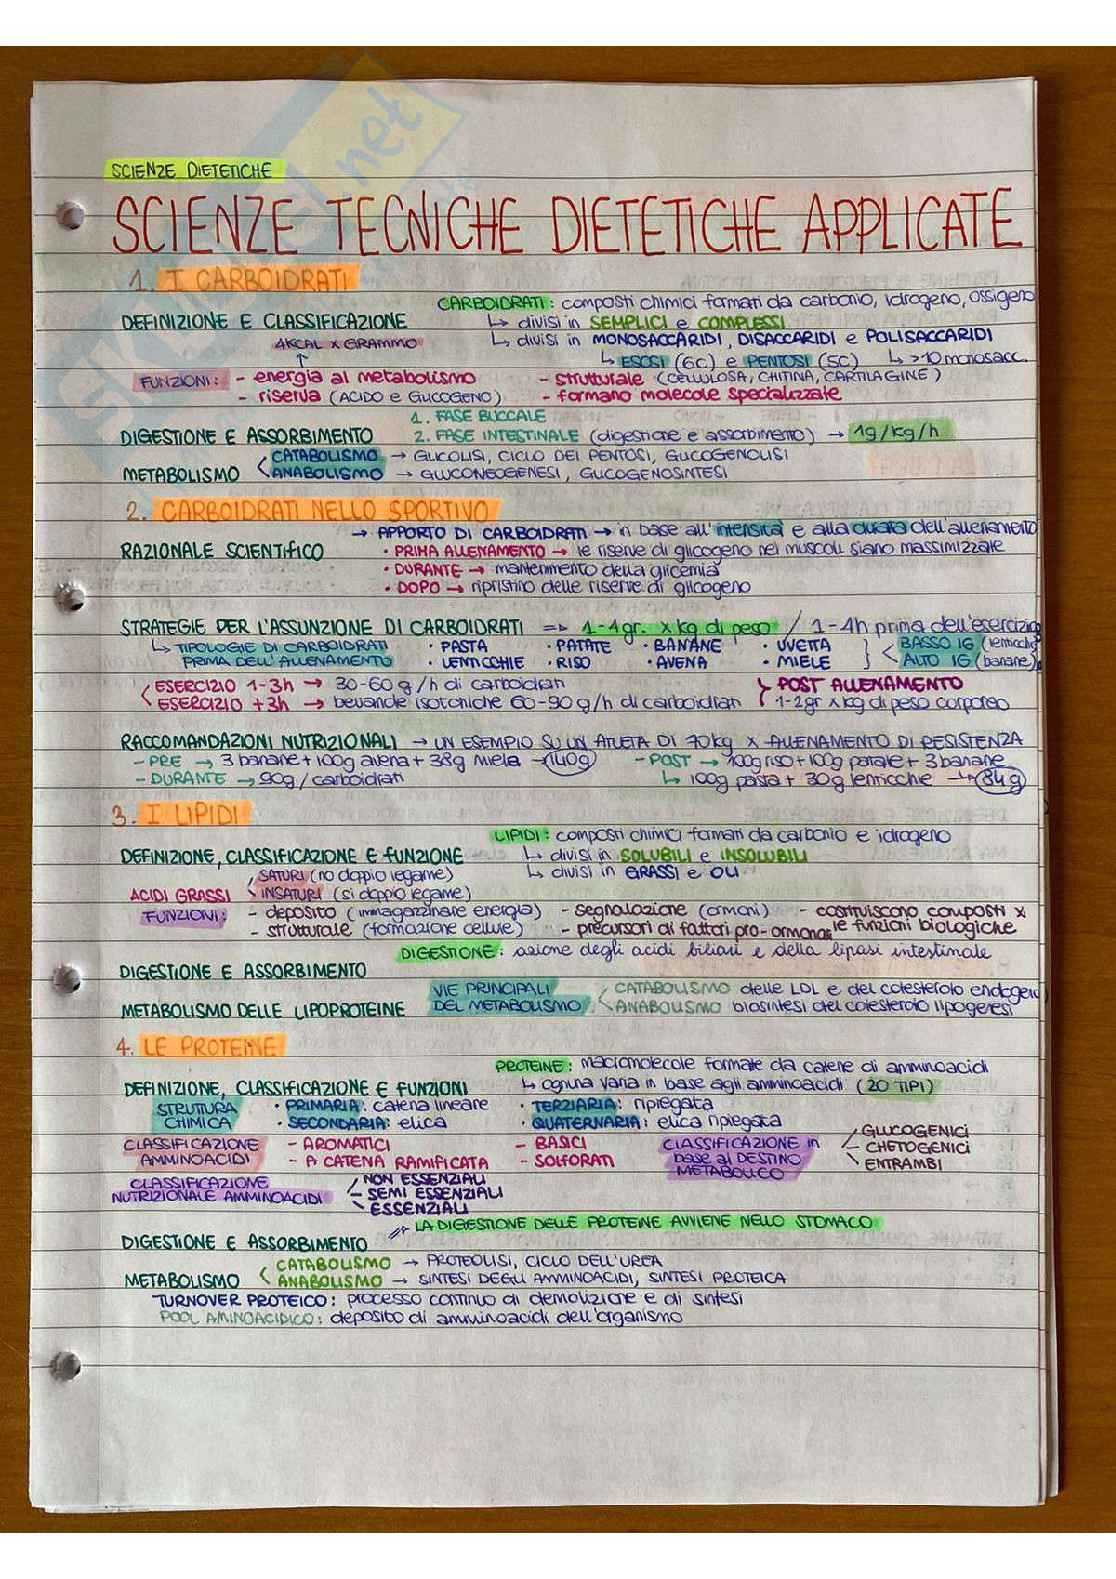 SCIENZE DIETETICHE
SCIENZE TECNICHE DIETETICHE APPLICATE
1. I CARBOIDRATI
CARBOIDRATI: composti chimici formati da carbonio, idrogeno, ossigeno
DEFINIZIONE E CLASSIFICAZIONE ↳ divisi in SEMPLICI e COMPLESSI
4KCAL X GRAMMO ↳ divisi in MONOSACCARIDI, DISACCARIDI e POLISACCARIDI
↑ ↳ ESOSI (6C) e PENTOSI (5C) ↳ >10 monosacc.
FUNZIONI: - energia al metabolismo - strutturale (CELLULOSA, CHITINA, CARTILAGINE)
- riserva (ACIDO e GLICOGENO) - formano molecole specializzate
1. FASE BUCCALE
DIGESTIONE E ASSORBIMENTO 2. FASE INTESTINALE (digestione e assorbimento) → 1g/kg/h
CATABOLISMO → GLICOLISI, CICLO DEI PENTOSI, GLICOGENOLISI
METABOLISMO < ANABOLISMO → GLUCONEOGENESI, GLICOGENOSINTESI
2. CARBOIDRATI NELLO SPORTIVO
→ APPORTO DI CARBOIDRATI → in base all'intensità e alla durata dell'allenamento
RAZIONALE SCIENTIFICO • PRIMA ALLENAMENTO → le riserve di glicogeno nei muscoli siano massimizzate
• DURANTE → mantenimento della glicemia
• DOPO → ripristino delle riserve di glicogeno
STRATEGIE PER L'ASSUNZIONE DI CARBOIDRATI => 1-4gr. x kg di peso / 1-4h prima dell'esercizio
↳ TIPOLOGIE DI CARBOIDRATI • PASTA • PATATE • BANANE • UVETTA } < BASSO IG (lenticchie)
PRIMA DELL'ALLENAMENTO • LENTICCHIE • RISO • AVENA • MIELE ALTO IG (banane)
< ESERCIZIO 1-3h → 30-60 g/h di carboidrati } POST ALLENAMENTO
ESERCIZIO +3h → bevande isotoniche 60-90 g/h di carboidrati 1-2gr x kg di peso corporeo
RACCOMANDAZIONI NUTRIZIONALI → UN ESEMPIO SU UN ATLETA DI 70kg X ALLENAMENTO DI RESISTENZA
- PRE → 3 banane + 100g avena + 38g miele → 140g - POST → 100g riso + 100g patate + 3 banane
- DURANTE → 90g / carboidrati ↳ 100g pasta + 30g lenticchie → 84g
3. I LIPIDI
LIPIDI: composti chimici formati da carbonio e idrogeno
DEFINIZIONE, CLASSIFICAZIONE E FUNZIONE ↳ divisi in SOLUBILI e INSOLUBILI
SATURI (no doppio legame) ↳ divisi in GRASSI e OLI
ACIDI GRASSI < INSATURI (si doppio legame)
FUNZIONI: - deposito (immagazzinare energia) - segnalazione (ormoni) - costituiscono composti x
- strutturale (formazione cellule) - precursori di fattori pro-ormonali le funzioni biologiche
DIGESTIONE: azione degli acidi biliari e della lipasi intestinale
DIGESTIONE E ASSORBIMENTO
VIE PRINCIPALI < CATABOLISMO delle LDL e del colesterolo endogeno
METABOLISMO DELLE LIPOPROTEINE DEL METABOLISMO ANABOLISMO biosintesi del colesterolo lipogenesi
4. LE PROTEINE
PROTEINE: macromolecole formate da catene di amminoacidi
DEFINIZIONE, CLASSIFICAZIONE E FUNZIONI ↳ ognuna varia in base agli amminoacidi (20 TIPI)
STRUTTURA • PRIMARIA: catena lineare • TERZIARIA: ripiegata
CHIMICA • SECONDARIA: elica • QUATERNARIA: elica ripiegata
CLASSIFICAZIONE - AROMATICI - BASICI CLASSIFICAZIONE in GLUCOGENICI
AMMINOACIDI - A CATENA RAMIFICATA - SOLFORATI base al DESTINO CHETOGENICI
METABOLICO ENTRAMBI
CLASSIFICAZIONE NON ESSENZIALI
NUTRIZIONALE AMMINOACIDI SEMI ESSENZIALI
ESSENZIALI
LA DIGESTIONE DELLE PROTEINE AVVIENE NELLO STOMACO
DIGESTIONE E ASSORBIMENTO
CATABOLISMO → PROTEOLISI, CICLO DELL'UREA
METABOLISMO < ANABOLISMO → SINTESI DEGLI AMMINOACIDI, SINTESI PROTEICA
TURNOVER PROTEICO: processo continuo di demolizione e di sintesi
POOL AMINOACIDICO: deposito di amminoacidi dell'organismo